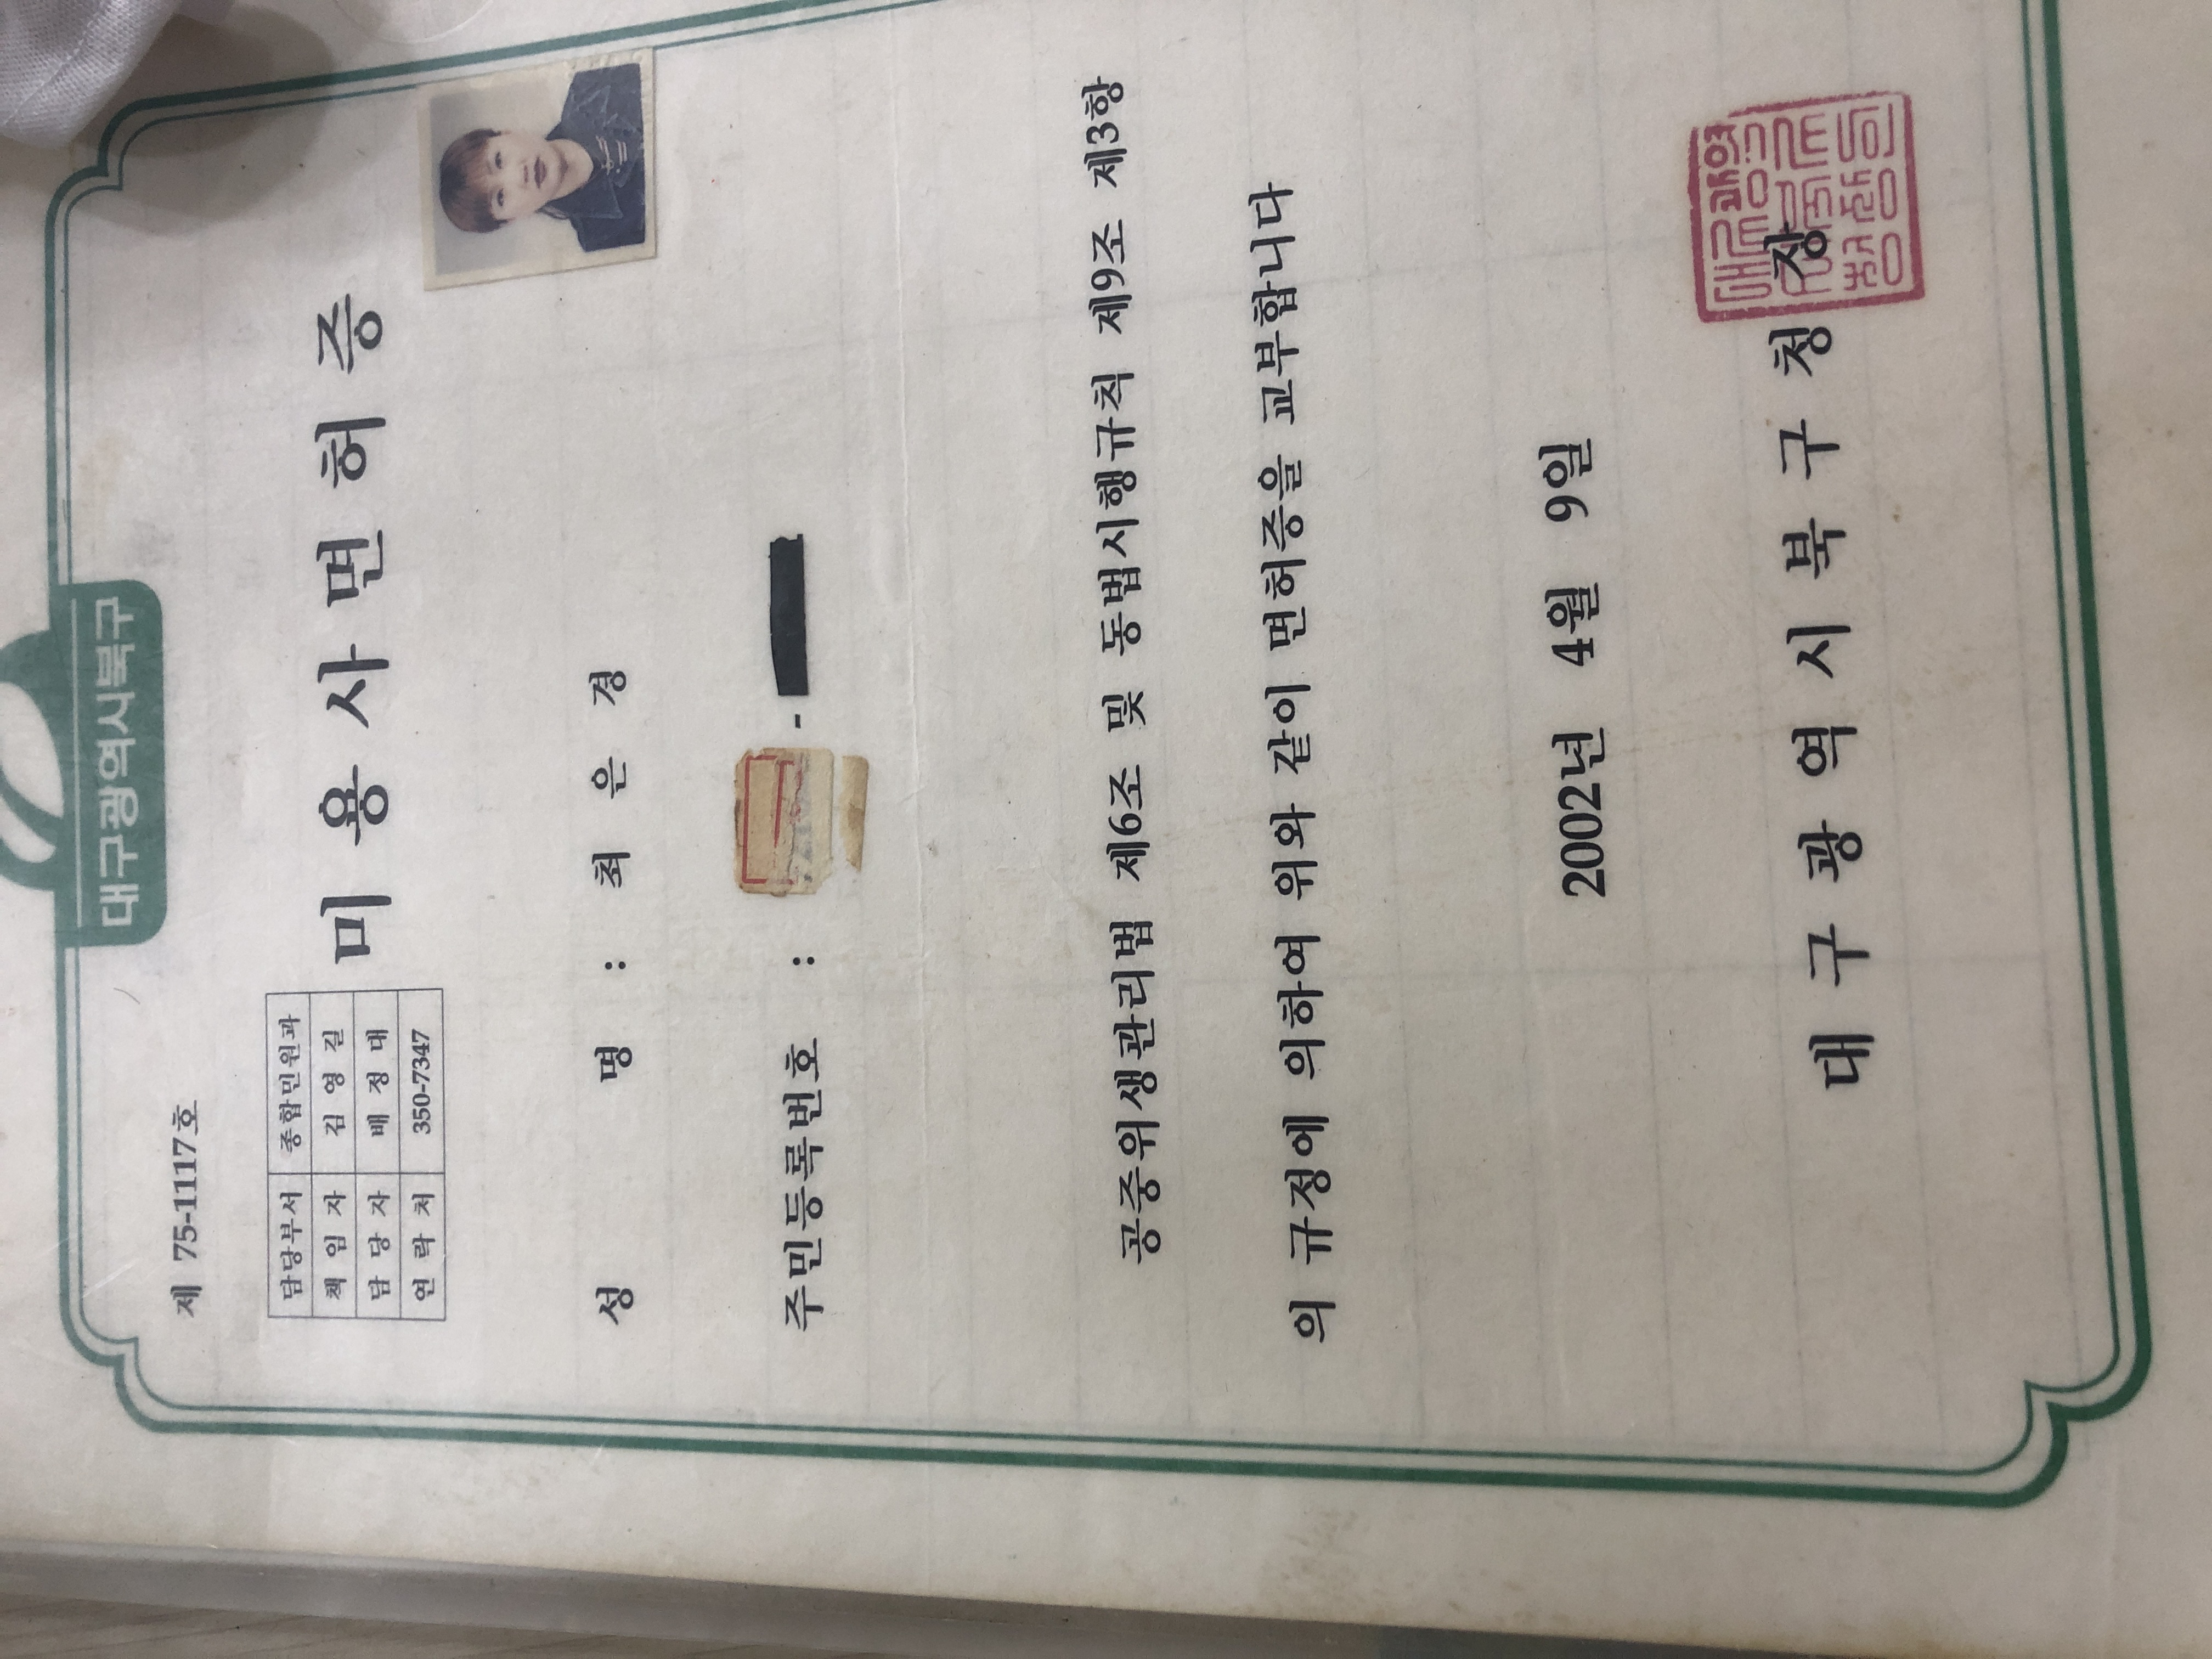 대구광역시북구
제 75-1117호
담당부서 종합민원과
책 임 자 김 영 길
담 당 자 배 정 대
연 락 처 350-7347
미 용 사 면 허 증
성 명 : 최 은 경
주민등록번호 : -
공중위생관리법 제6조 및 동법시행규칙 제9조 제3항
의 규정에 의하여 위와 같이 면허증을 교부합니다
2002년 4월 9일
대 구 광 역 시 북 구 청 장